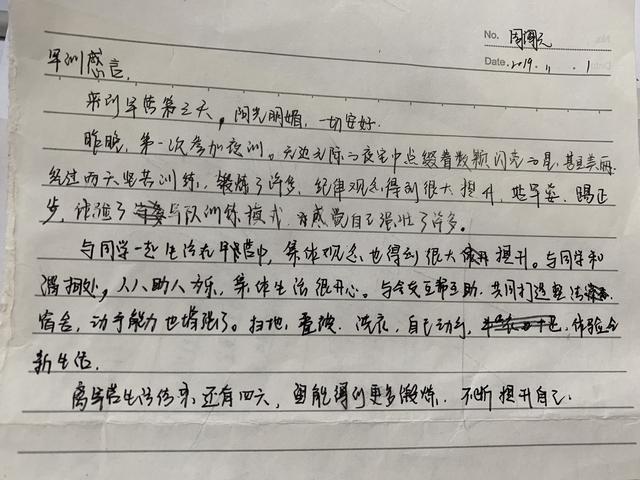 No. 周国元
Date. 2019. 11. 1
军训感言.
来到军营第三天，阳光明媚，一切安好.
昨晚，第一次参加夜训。无边无际的夜空中点缀着数颗闪亮的星，甚是美丽.
经过两天坚苦训练，锻炼了许多，纪律观念得到很大提升，站军姿，踢正
步，体验了军队训练模式，亦感觉自己强壮了许多。
与同学一起生活在军营中，集体观念也得到很大提升。与同学和
谐相处，人人助人为乐，集体生活很开心。与舍友互帮互助，共同打造整洁
宿舍，动手能力也增强了。扫地，叠被，洗衣，自己动手，体验全
新生活.
离军营生活结束还有四天，望能得到更多锻炼，不断提升自己.